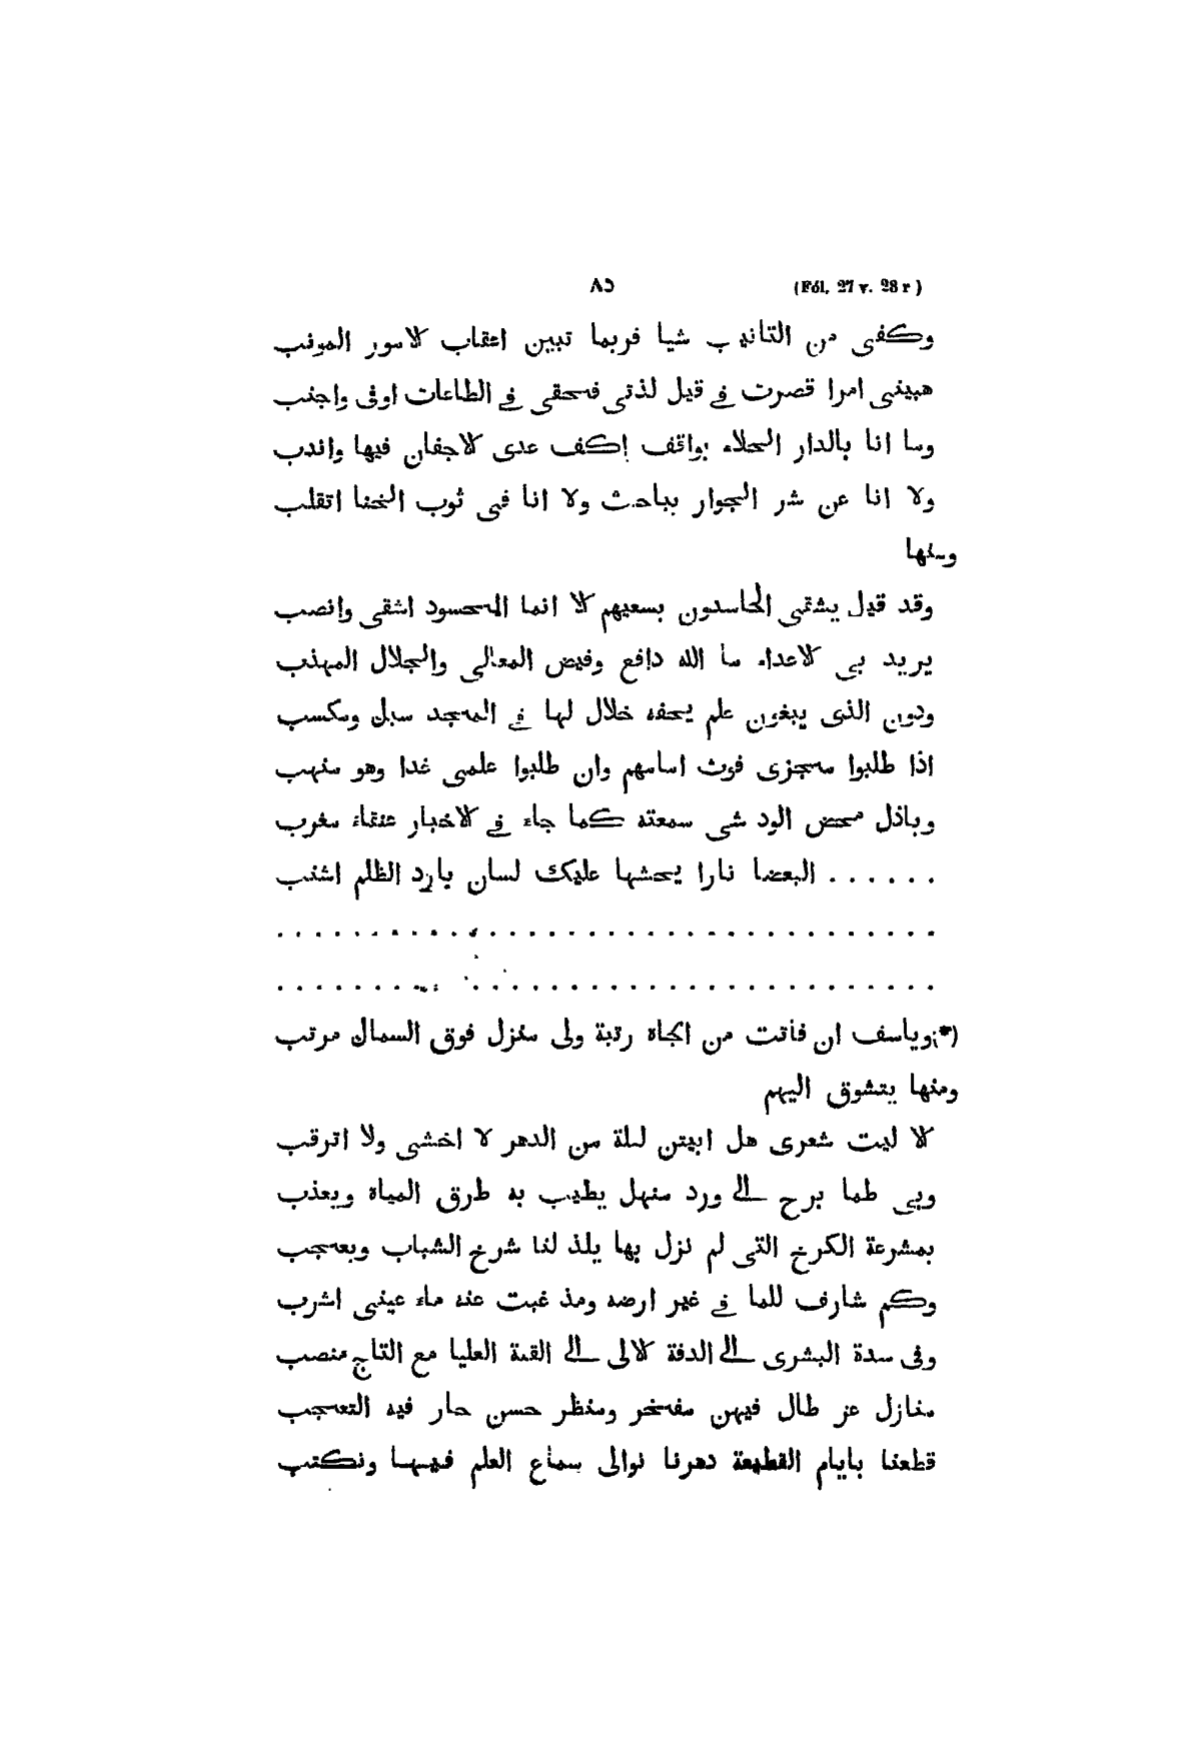 (Fól. 27 v. 28 r) ٨٥
وكفى من التانيب شيا فربما تبين اعقاب كلامور المونب
هبينى امرا قصرت فى قيل لذتى فحقى فى الطاعات اوفى واجنب
وما انا بالدار الحلاء بواقف اكف عدى كلاجفان فيها واندب
ولا انا عن شر الجوار بباحث ولا انا فى ثوب الخنا اتقلب
ومنها
وقد قيل يشقى الحاسدون بسعيهم كلا انما المحسود اشقى وانصب
يريد بى كلاعداء ما الله دافع وفيض المعالى والجلال المهذب
ودون الذى يبغون علم يحفه خلال لها فى المجد سبل ومكسب
اذا طلبوا معجزى فوث اسامهم وان طلبوا علمى غدا وهو منهب
وباذل محض الود شى سمعته كما جاء فى كلاخبار عنقاء مغرب
. . . . . . البعضا نارا يحشها عليك لسان بارد الظلم اشنب
. . . . . . . . . . . . . . . . . . . . . . . . . . . . . . . . . .
. . . . . . . . . . . . . . . . . . . . . . . . . . . . . . . . . .
(*)وياسف ان فأتت من الجاة رتبة ولى منزل فوق السمال مرتب
ومنها يتشوق اليهم
كلا ليت شعرى هل ابيتن ليلة من الدهر لا اخشى ولا اترقب
وبى ظما برح الى ورد منهل يطيب به طرق المياة ويعذب
بمشرعة الكرخ التى لم نزل بها يلذ لنا شرخ الشباب وبعجب
وكم شارف للما فى غير ارضه ومذ غبت عنه ماء عينى اشرب
وفى سدة البشرى الى الدفة كلالى الى القبة العليا مع التاج منصب
منازل عز طال فيهن مفخر ومنظر حسن حار فيه التعجب
قطعنا بايام القطيعة دهرنا نوالى سماع العلم فيها ونكتب